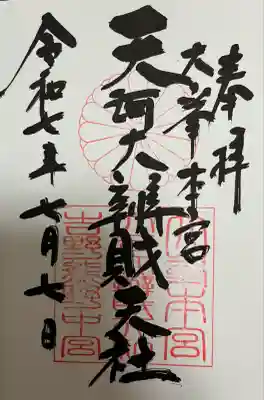 奉拝
大峯本宮
天河大辨財天社
令和七年七月七日
吉野熊野中宮